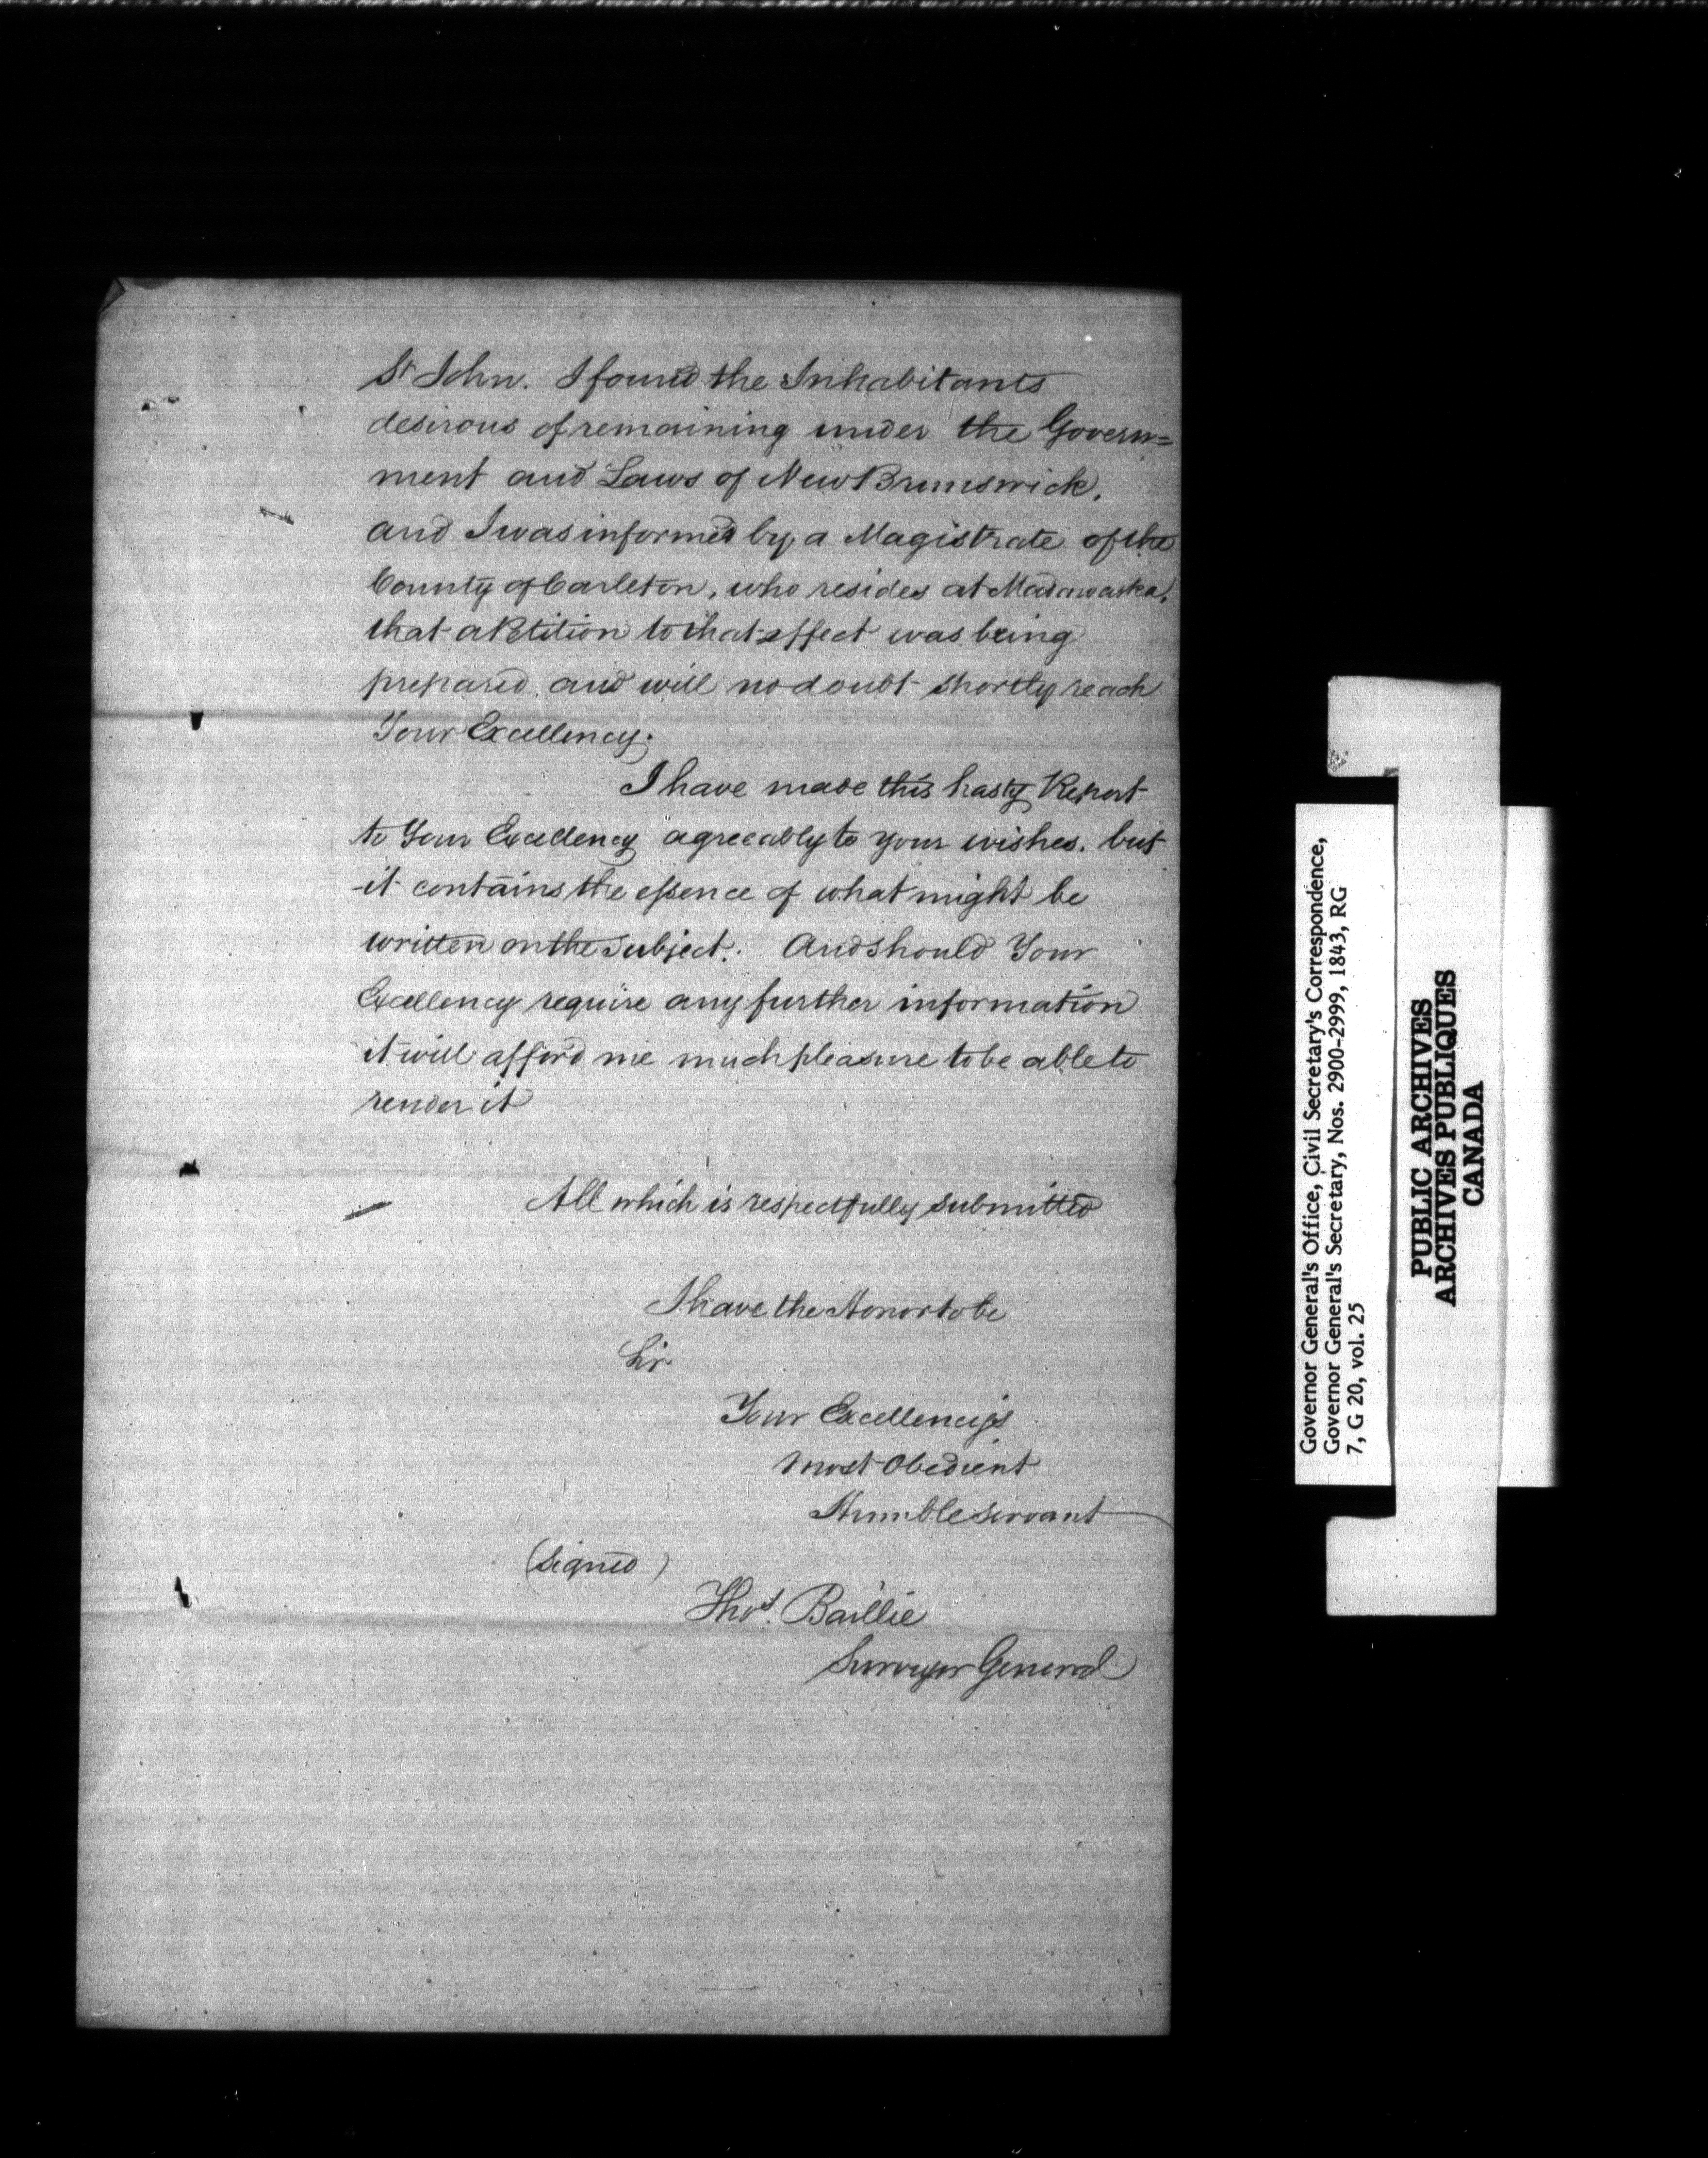 St John. I found the Inhabitants
desirous of remaining under the Govern=
ment and Laws of New Brunswick,
and I was informed by a Magistrate of the
County of Carleton, who resides at Madawaska,
that a Petition to that effect was being
prepared and will no doubt shortly reach
Your Excellency.
I have made this hasty Report
to Your Excellency agreeably to your wishes. but
it contains the essence of what might be
written on the subject. And should Your
Excellency require any further information
it will afford me much pleasure to be able to
render it
All which is respectfully submitted
I have the Honor to be
Sir
Your Excellency's
Most Obedient
Humble Servant
(signed)
Thos. Baillie
Surveyor General
Governor General's Office, Civil Secretary's Correspondence,
Governor General's Secretary, Nos. 2900-2999, 1843, RG
7, G 20, vol. 25
PUBLIC ARCHIVES
ARCHIVES PUBLIQUES
CANADA